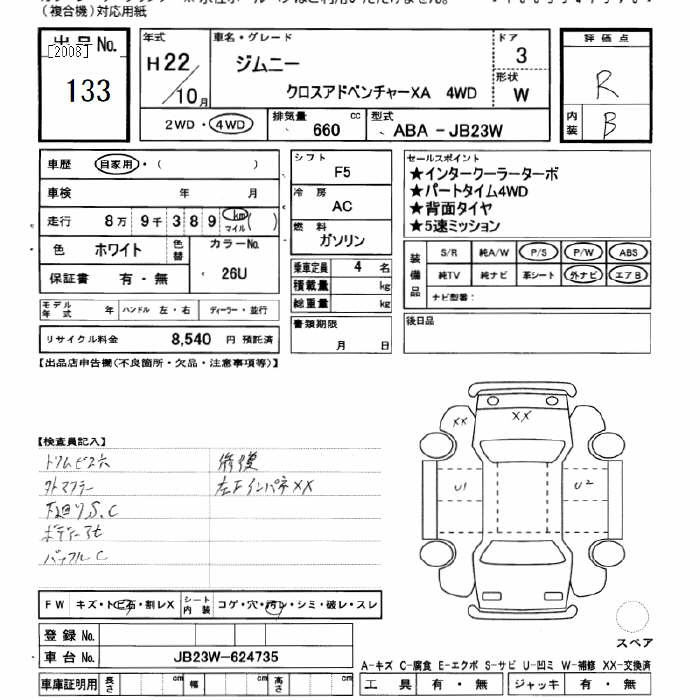 (複合機)対応用紙
出品No.
[2008]
133
年式
H22/10月
車名・グレード
ジムニー
クロスアドベンチャーXA 4WD
ドア
3
形状
W
評価点
R
内装
B
2WD・4WD
排気量
660 cc
型式
ABA - JB23W
車歴 自家用・( )
車検 年 月
走行 8万 9千 3 8 9 km マイル( )
色 ホワイト 色替 カラーNo.
26U
保証書 有・無
モデル年式 年 ハンドル 左・右 ディーラー・並行
リサイクル料金 8,540 円 預託済
シフト
F5
冷房
AC
燃料
ガソリン
乗車定員 4 名
積載量 kg
総重量 kg
書類期限
月 日
セールスポイント
★インタークーラーターボ
★パートタイム4WD
★背面タイヤ
★5速ミッション
装備品
S/R 純A/W P/S P/W ABS
純TV 純ナビ 革シート 外ナビ エアB
ナビ型番:
後日品
【出品店申告欄(不良箇所・欠品・注意事項等)】
【検査員記入】
トリムビス穴
外マフラー
下廻りS.C
修復
左FインパネXX
XX
XX
U1
U2
FW キズ・トビ石・割レX シート内装 コゲ・穴・汚レ・シミ・破レ・スレ
登録No.
車台No. JB23W-624735
車庫証明用 長さ cm 幅 cm 高さ cm
スペア
A-キズ C-腐食 E-エクボ S-サビ U-凹ミ W-補修 XX-交換済
工具 有・無 ジャッキ 有・無